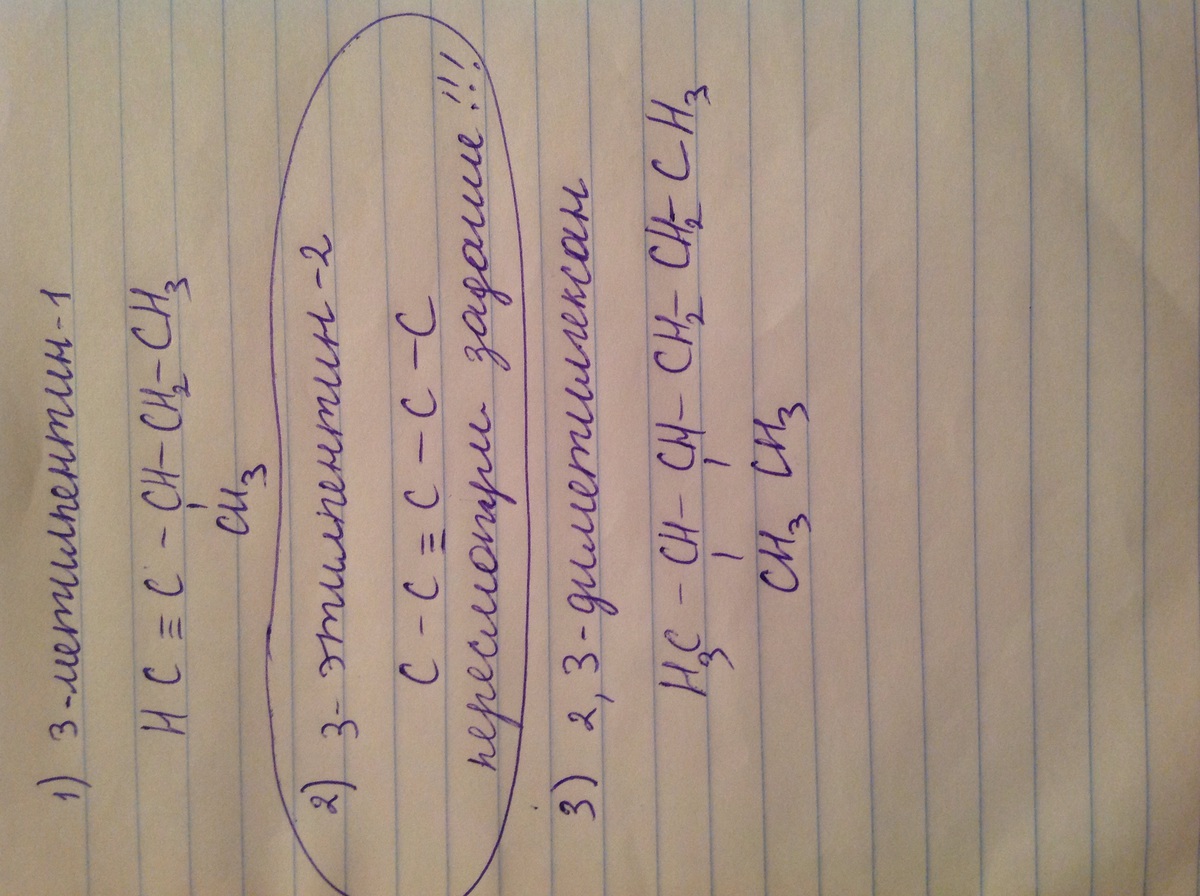 1) 3-метилпентин-1
HC ≡ C - CH - CH2 - CH3
CH3
2) 3-этилпентин-2
C - C ≡ C - C - C
пересмотри задание!!!
3) 2,3-диметилгексан
H3C - CH - CH - CH2 - CH2 - CH3
CH3 CH3